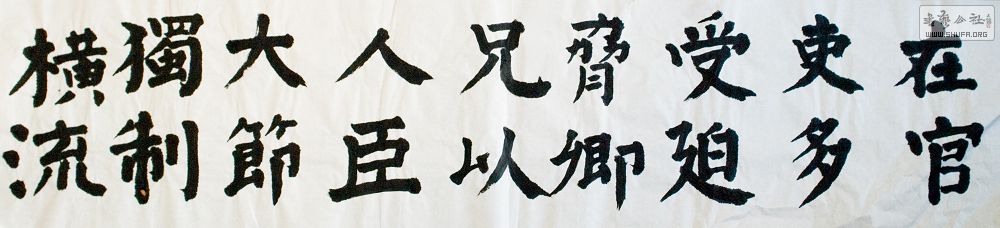 在官
吏多
受廹
脅卿
兄以
人臣
大節
獨制
横流
書藝公社
WWW.SHUFA.ORG